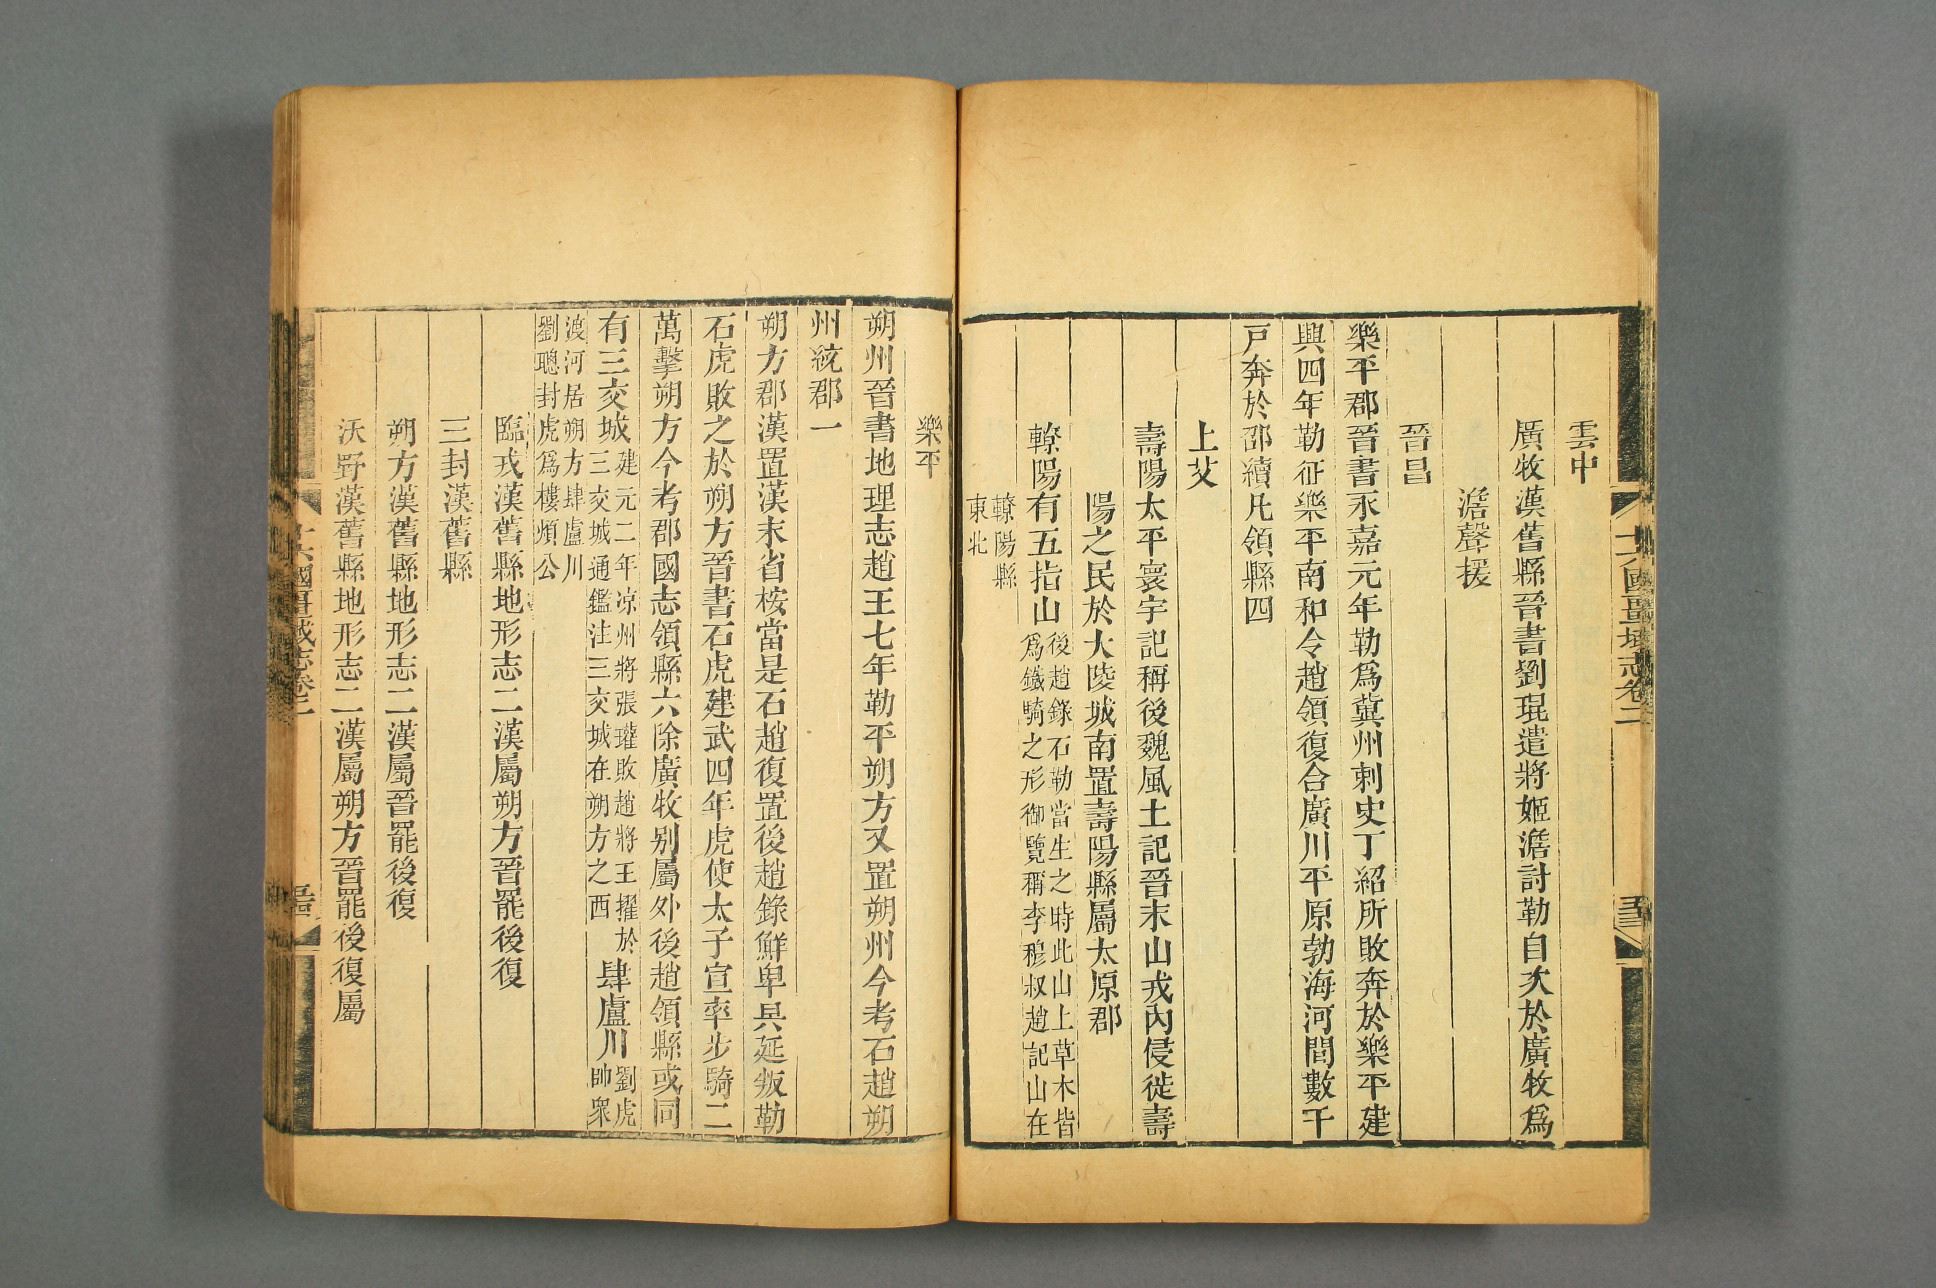 雲中
廣牧漢舊縣晉書劉琨遣將姬澹討勒自次於廣牧爲
澹聲援
晉昌
樂平郡晉書永嘉元年勒爲冀州刺史丁紹所敗奔於樂平建
興四年勒征樂平南和令趙領復合廣川平原勃海河間數千
戸奔於邵續凡領縣四
上艾
壽陽太平寰宇記稱後魏風土記晉末山戎內侵徙壽
陽之民於大陵城南置壽陽縣屬太原郡
轑陽有五指山
後趙錄石勒當生之時此山上草木皆
爲鐵騎之形御覽稱李穆叔趙記山在
轑陽縣
東北
十六國疆域志卷二
樂平
朔州晉書地理志趙王七年勒平朔方又置朔州今考石趙朔
州統郡一
朔方郡漢置漢末省桉當是石趙復置後趙錄鮮卑具延叛勒
石虎敗之於朔方晉書石虎建武四年虎使太子宣率步騎二
萬擊朔方今考郡國志領縣六除廣牧别屬外後趙領縣或同
有三交城
建元二年凉州將張瓘敗趙將王擢於
三交城通鑑注三交城在朔方之西
肆盧川
劉虎
帥衆
渡河居朔方肆盧川
劉聰封虎爲樓煩公
臨戎漢舊縣地形志二漢屬朔方晉罷後復
三封漢舊縣
朔方漢舊縣地形志二漢屬晉罷後復
沃野漢舊縣地形志二漢屬朔方晉罷後復屬
十六國疆域志卷二